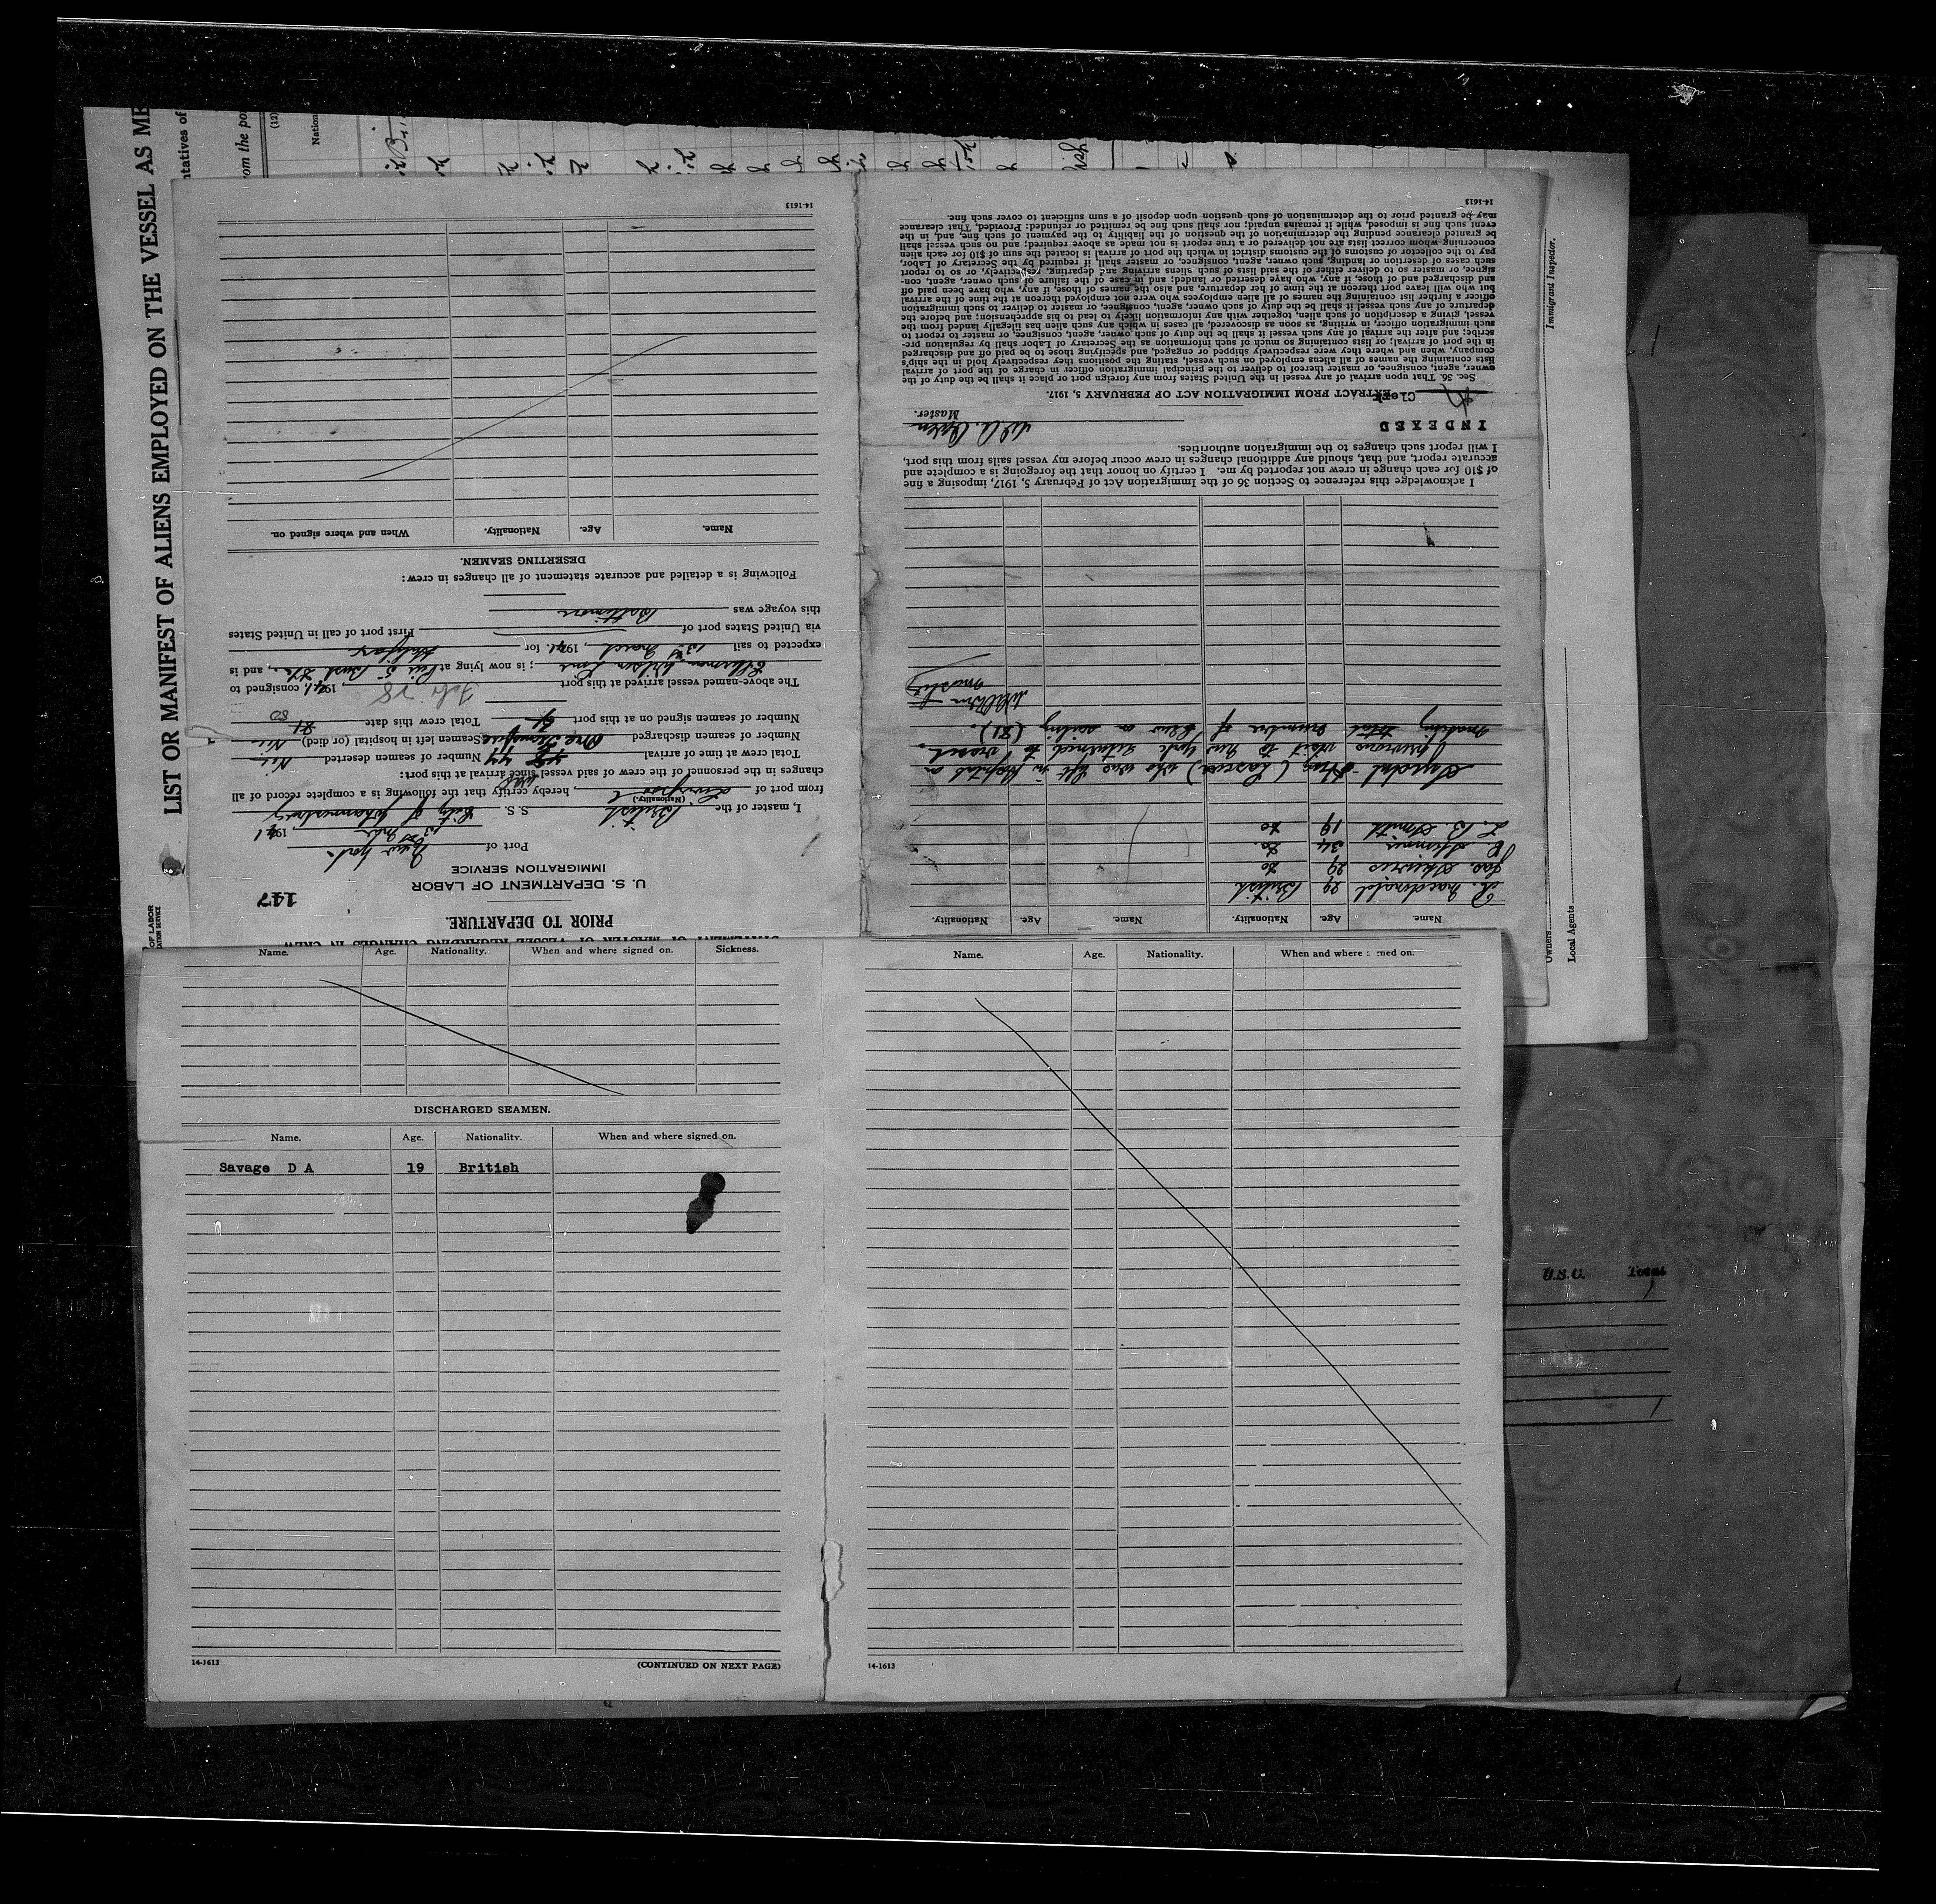 LIST OR MANIFEST OF ALIENS EMPLOYED ON THE VESSEL AS ME
ntatives of
om the po
(12)
Nation
OF LABOR
ATION SERVICE
Immigrant Inspector.
Owners
Local Agents
PRIOR TO DEPARTURE.
U. S. DEPARTMENT OF LABOR
IMMIGRATION SERVICE
147
Port of New York.
13th Mar 1941
I, master of the British S. S. City of Johannesburg
(Nationality.)
from port of Liverpool, hereby certify that the following is a complete record of all
changes in the personnel of the crew of said vessel since arrival at this port:
Total crew at time of arrival 77 Number of seamen deserted Nil
Number of seamen discharged One Seamen left in hospital (or died) Nil
Number of seamen signed on at this port 4 Total crew this date 81
80
The above-named vessel arrived at this port Feb 28, 1941, consigned to
Ellerman Wilson Line; is now lying at Pier 5 Bush, and is
expected to sail 13th March, 1941, for Halifax
via United States port of First port of call in United States
this voyage was Baltimore
Following is a detailed and accurate statement of all changes in crew:
DESERTING SEAMEN.
Name. Age. Nationality. When and where signed on.
14-1613
Name. Age. Nationality. Name. Age. Nationality.
R. Macdonald 29 British
Jas. 29 do
34 do.
L. B. Smith 19 do
(Lascar) who was left in Hospital on
previous visit to New York returned to vessel.
making total number of Crew on sailing (81).
Master
I acknowledge this reference to Section 36 of the Immigration Act of February 5, 1917, imposing a fine
of $10 for each change in crew not reported by me. I certify on honor that the foregoing is a complete and
accurate report, and that, should any additional changes in crew occur before my vessel sails from this port,
I will report such changes to the immigration authorities.
INDEXED
Master.
Clerk
EXTRACT FROM IMMIGRATION ACT OF FEBRUARY 5, 1917.
Sec. 36. That upon arrival of any vessel in the United States from any foreign port or place it shall be the duty of the
owner, agent, consignee, or master thereof to deliver to the principal immigration officer in charge of the port of arrival
lists containing the names of all aliens employed on such vessel, stating the positions they respectively hold in the ship's
company, when and where they were respectively shipped or engaged, and specifying those to be paid off and discharged
in the port of arrival; or lists containing so much of such information as the Secretary of Labor shall by regulation pre-
scribe; and after the arrival of any such vessel it shall be the duty of such owner, agent, consignee, or master to report to
such immigration officer, in writing, as soon as discovered, all cases in which any such alien has illegally landed from the
vessel, giving a description of such alien, together with any information likely to lead to his apprehension; and before the
departure of any such vessel it shall be the duty of such owner, agent, consignee, or master to deliver to such immigration
officer a further list containing the names of all alien employees who were not employed thereon at the time of the arrival
but who will leave port thereon at the time of her departure, and also the names of those, if any, who have been paid off
and discharged and of those, if any, who have deserted or landed; and in case of the failure of such owner, agent, con-
signee, or master so to deliver either of the said lists of such aliens arriving and departing, respectively, or so to report
such cases of desertion or landing, such owner, agent, consignee, or master shall, if required by the Secretary of Labor,
pay to the collector of customs of the customs district in which the port of arrival is located the sum of $10 for each alien
concerning whom correct lists are not delivered or a true report is not made as above required; and no such vessel shall
be granted clearance pending the determination of the question of the liability to the payment of such fine, and, in the
event such fine is imposed, while it remains unpaid; nor shall such fine be remitted or refunded: Provided, That clearance
may be granted prior to the determination of such question upon deposit of a sum sufficient to cover such fine.
14-1613
Name. Age. Nationality. When and where signed on. Sickness.
DISCHARGED SEAMEN.
Name. Age. Nationality. When and where signed on.
Savage D A 19 British
14-1613
(CONTINUED ON NEXT PAGE)
Name. Age. Nationality. When and where signed on.
14-1613
U.S.C. Total